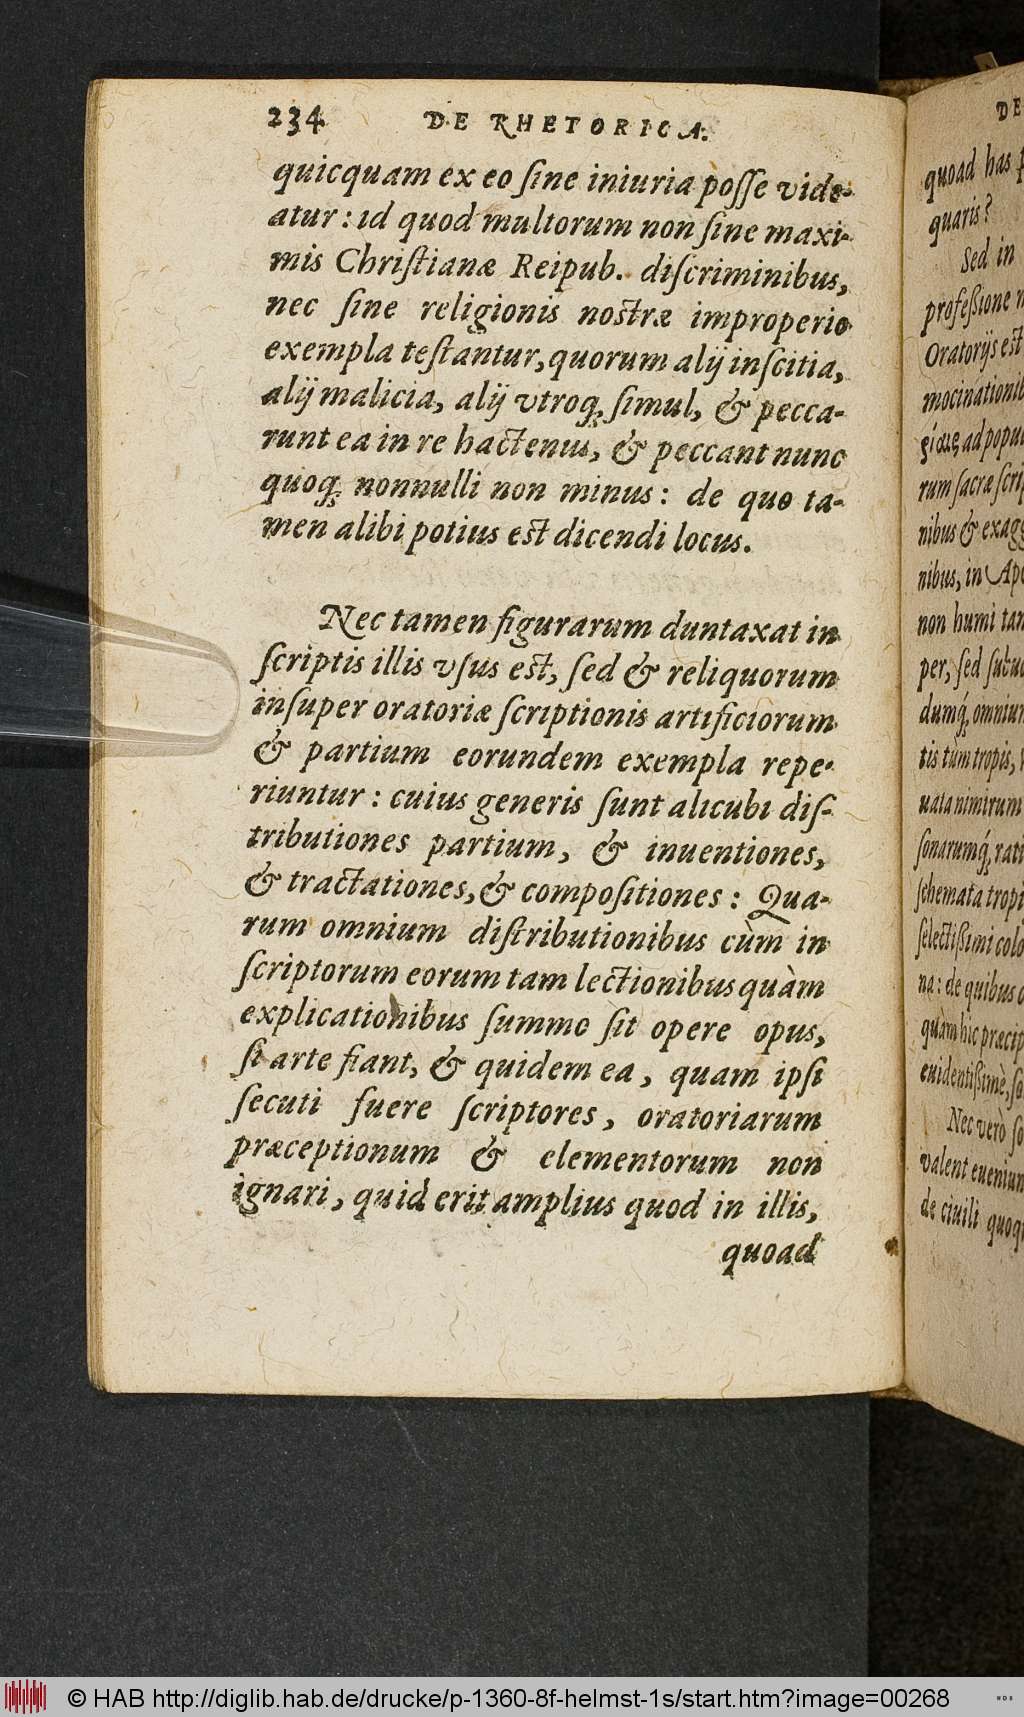 234 DE RHETORICA.
quicquam ex eo ſine iniuria poſſe vide-
atur: id quod multorum non ſine maxi-
mis Chriſtianæ Reipub. diſcriminibus,
nec ſine religionis noſtræ improperio
exempla teſtantur, quorum alij inſcitia,
alij malicia, alij vtroq; ſimul, & pecca-
runt ea in re hactenus, & peccant nunc
quoq; nonnulli non minus: de quo ta-
men alibi potius eſt dicendi locus.
Nec tamen figurarum duntaxat in
ſcriptis illis vſus eſt, ſed & reliquorum
inſuper oratoriæ ſcriptionis artificiorum
& partium eorundem exempla repe-
riuntur: cuius generis ſunt alicubi diſ-
tributiones partium, & inuentiones,
& tractationes, & compoſitiones: Qua-
rum omnium diſtributionibus cùm in
ſcriptorum eorum tam lectionibus quàm
explicationibus ſummo ſit opere opus,
ſi arte fiant, & quidem ea, quam ipſi
ſecuti fuere ſcriptores, oratoriarum
præceptionum & elementorum non
ignari, quid erit amplius quod in illis,
quoad
DE
quoad has
quaris?
Sed in
profeßione
Oratorijs eſt
ad
rum ſacræ
nibus &
nibus, in
non humi
per, ſed
dumq́;
tis tum tropis,
uata nimirum
ſonarumq́;
ſchemata
ſelectißimi
na: de quibus
quam hic
euidentißimè,
Nec verò
valent
de ciuili
© HAB http://diglib.hab.de/drucke/p-1360-8f-helmst-1s/start.htm?image=00268